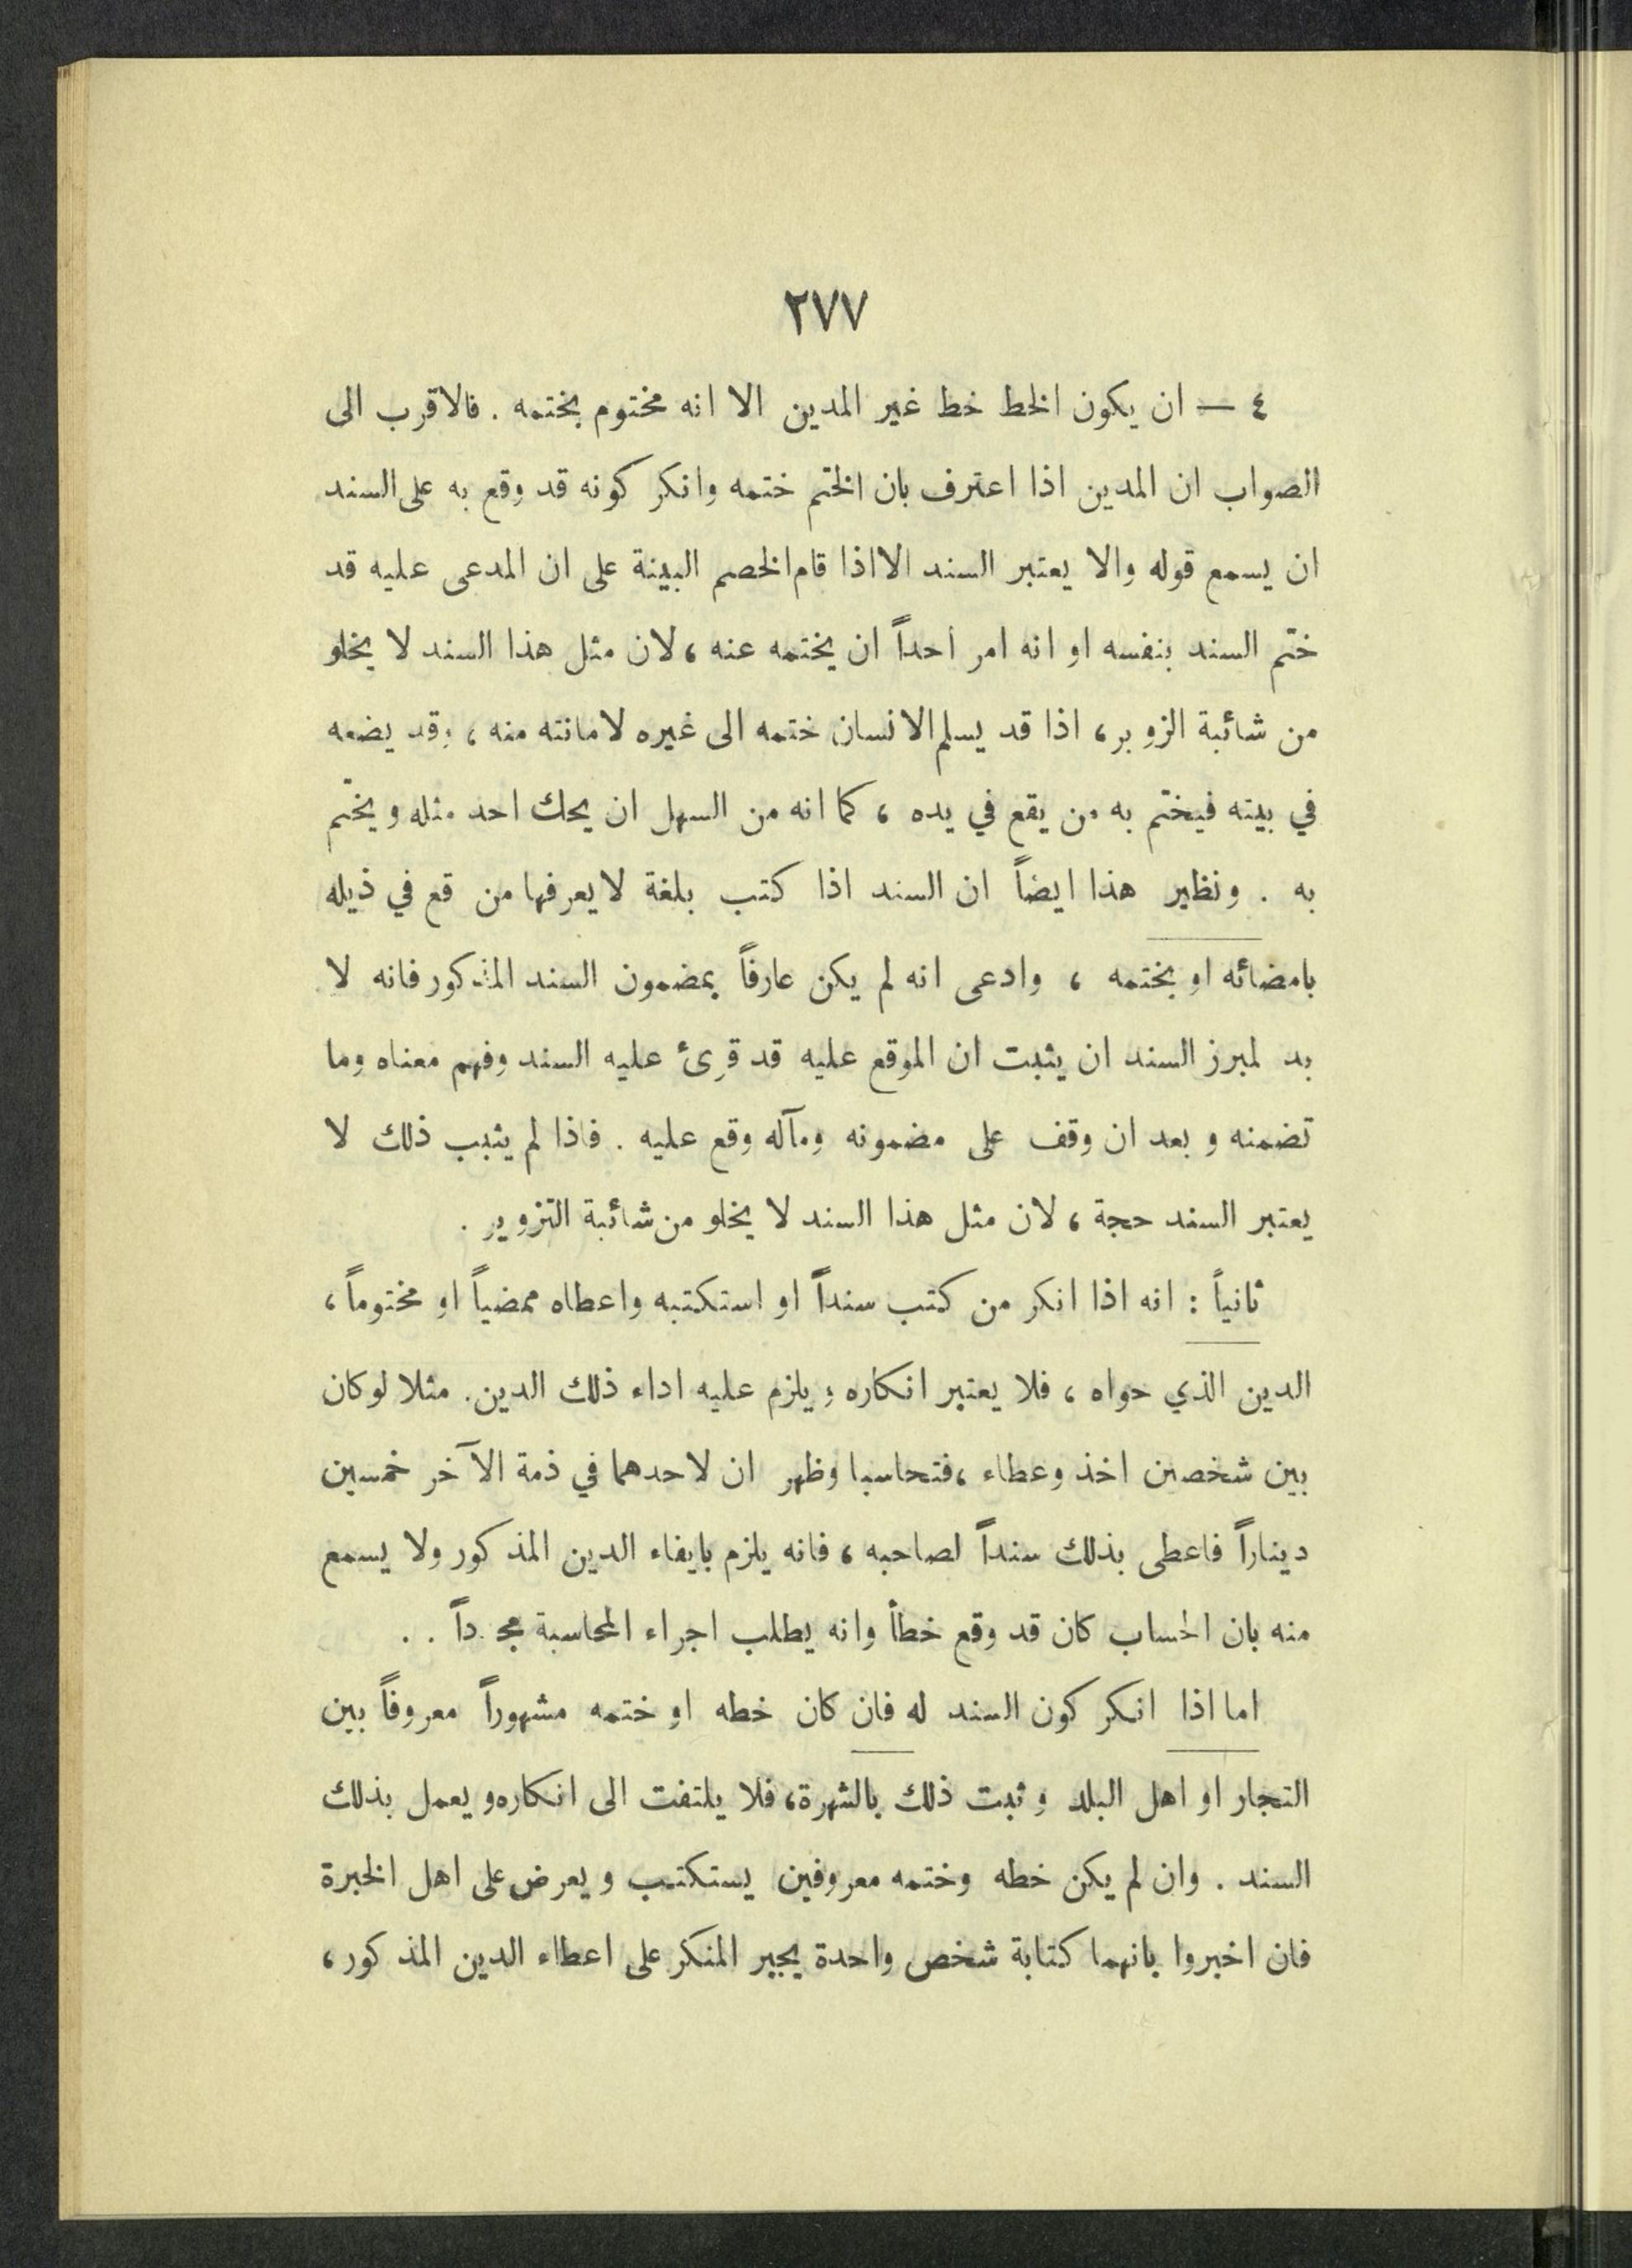 ٢٧٧
٤ — ان يكون الخط خط غير المدين الا انه مختوم بختمه . فالاقرب الى
الصواب ان المدين اذا اعترف بان الختم ختمه وانكر كونه قد وقع به على السند
ان يسمع قوله والا يعتبر السند الا اذا قام الخصم البينة على ان المدعى عليه قد
ختم السند بنفسه او انه امر احداً ان يختمه عنه ، لان مثل هذا السند لا يخلو
من شائبة الزوبر ، اذا قد يسلم الانسان ختمه الى غيره لامانته منه ، وقد يضعه
في بيته فيختم به من يقع في يده ، كما انه من السهل ان يحك احد مثله ويختم
به . ونظير هذا ايضاً ان السند اذا كتب بلغة لا يعرفها من قع في ذيله
بامضائه او بختمه ، وادعى انه لم يكن عارفاً بمضمون السند المذكور فانه لا
بد لمبرز السند ان يثبت ان الموقع عليه قد قرِئ عليه السند وفهم معناه وما
تضمنه وبعد ان وقف على مضمونه ومآله وقع عليه . فاذا لم يثبب ذلك لا
يعتبر السند حجة ، لان مثل هذا السند لا يخلو من شائبة التزوير .
ثانياً : انه اذا انكر من كتب سنداً او استكتبه واعطاه ممضياً او مختوماً ،
الدين الذي حواه ، فلا يعتبر انكاره ويلزم عليه اداء ذلك الدين . مثلا لوكان
بين شخصين اخذ وعطاء ، فتحاسبا وظهر ان لاحدهما في ذمة الآخر خمسين
ديناراً فاعطى بذلك سنداً لصاحبه ، فانه يلزم بايفاء الدين المذكور ولا يسمع
منه بان الحساب كان قد وقع خطأ وانه يطلب اجراء المحاسبة مجدداً . .
اما اذا انكر كون السند له فان كان خطه او ختمه مشهوراً معروفاً بين
التجار او اهل البلد وثبت ذلك بالشهرة ، فلا يلتفت الى انكاره ويعمل بذلك
السند . وان لم يكن خطه وختمه معروفين يستكتب ويعرض على اهل الخبرة
فان اخبروا بانهما كتابة شخص واحدة يجبر المنكر على اعطاء الدين المذكور ،